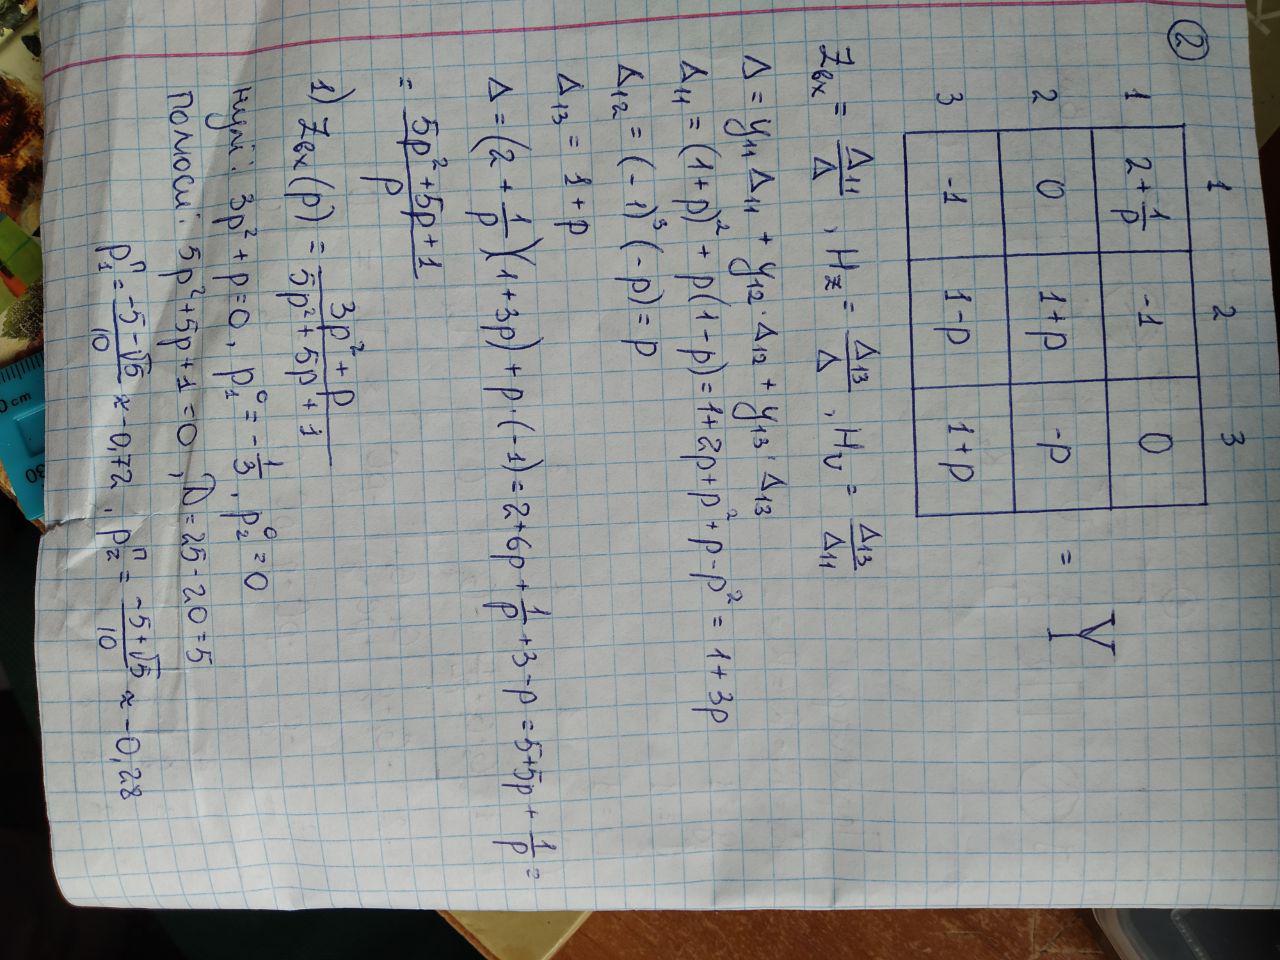 ②
1 2 3
1 2+1/p -1 0
2 0 1+p -p = Y
3 -1 1-p 1+p
Zвх = Δ11/Δ , HZ = Δ13/Δ , HU = Δ13/Δ11
Δ = y11 Δ11 + y12 · Δ12 + y13 · Δ13
Δ11 = (1+p)² + p(1-p) = 1+2p+p²+p-p² = 1+3p
Δ12 = (-1)³(-p) = p
Δ13 = 1+p
Δ = (2+1/p)(1+3p) + p·(-1) = 2+6p+1/p+3-p = 5+5p+1/p =
= (5p²+5p+1)/p
1) Zвх(p) = (3p²+p)/(5p²+5p+1)
нулі: 3p²+p=0, p₁⁰ = -1/3, p₂⁰ = 0
полюси: 5p²+5p+1=0, D=25-20=5
p₁ⁿ = (-5-√5)/10 ≈ -0,72, p₂ⁿ = (-5+√5)/10 ≈ -0,28
cm
30